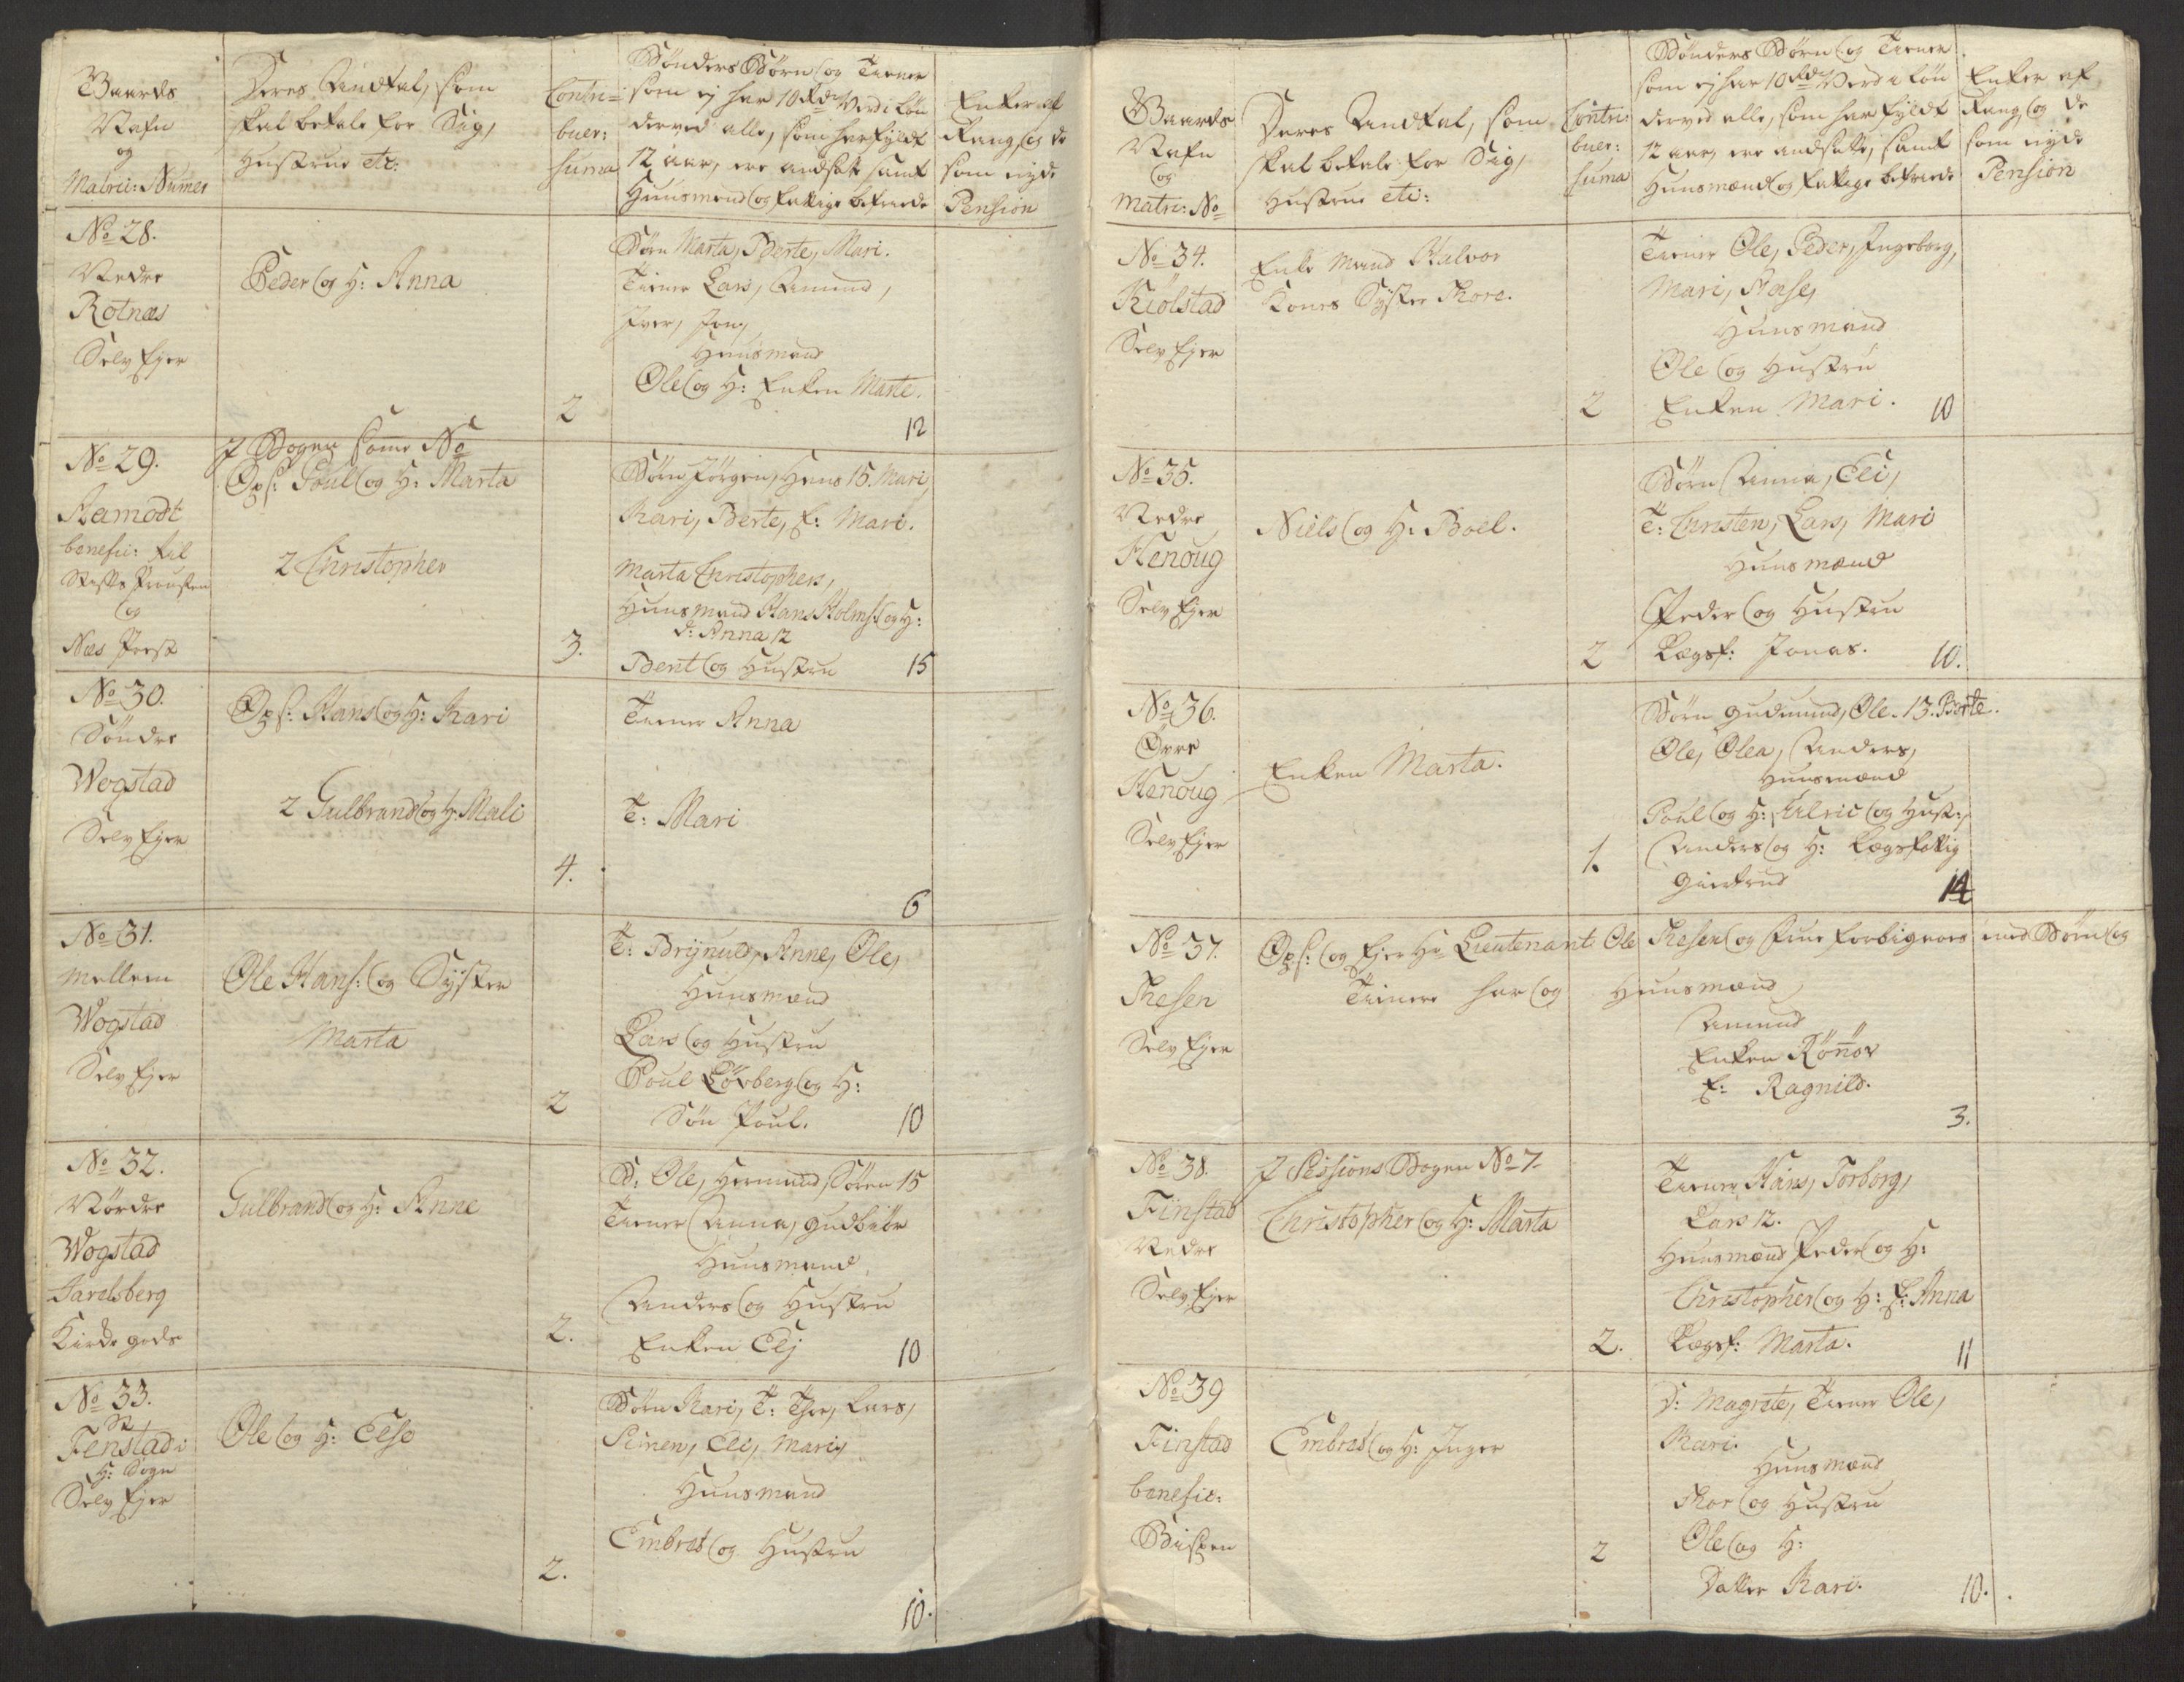 Gaards
Nafn
og
Matric: Numer
Deres Andtal, som
skal betale for Sig,
Hustrue etc:
Contri=
buer:
suma
Bønders Børn og Tiener
som ej har 10 Rdr Verd i Løn
derved alle, som har fyldt
12 aar, ere andsatte samt
Huusmænd og fattige befriede
Enker af
Rang, og de
som nyde
Pension
No 28.
Nedre
Rotnæs
Selv Ejer
Peder og H: Anna
2
Børn Marta, Berte, Mari.
Tiener Lars, Amund,
Iver, Jon,
Huusmænd
Ole og H: Enken Marte.
12
No 29.
Aamodt
benefic: til
Provsten
og
Næs Præst
I Bogen samme No
Ops: Poul og H: Marta
2 Christopher
3.
Børn Jörgen, Hans 15. Mari,
Kari, Berte, E: Mari.
Marta Christophers,
Huusmænd Hans Holms: og H:
d: Anna 12
Bent og Hustru
15
No 30.
Søndre
Wogstad
Selv Ejer
Ops: Hans og H: Kari
2 Gulbrand og H: Mali
4.
Tiener Anna
T: Mari
6
No 31.
Mellem
Wogstad
Selv Ejer
Ole Hans: og Syster
Marta
2
T: Brynild, Anne, Ole,
Huusmænd
Lars og Hustru
Poul Lövberg og H:
Søn Poul.
10
No 32.
Nørdre
Wogstad
Jarelsberg
Kirke gods
Gulbrand og H: Anne
2.
B: Ole, Hermund, Søren 15
Tiener Anna, Gudbiör
Huusmænd,
Anders og Hustru
Enken Elj
10
No 33.
Fenstad i
H: Sogn
Selv Ejer
Ole og H: Else
2.
Børn Kari, T: Thor, Lars,
Simen, Eli, Mari,
Huusmænd
Embret og Hustru
10.
Gaards
Nafn
og
Matri: No
Deres Andtal, som
skal betale for Sig,
Hustrue etc:
Contri:
buer:
suma
Bønders Børn og Tiener
som ej har 10 Rdr Verd i Løn
derved alle, som har fyldt
12 aar, ere andsatte, samt
Huusmænd og fattige befriede
Enker af
Rang, og de
som nyde
Pension
No 34.
Kiölstad
Selv Ejer
Enke Mand Halvor
Kones Syster Thore.
2
Tiener Ole, Peder, Ingeborg,
Mari, Aase,
Huusmænd
Ole og Hustru
Enken Mari.
10
No 35.
Nedre
Henoug
Selv Ejer
Niels og H: Boel.
2
Børn Anna, Eli,
T: Christen, Lars, Mari
Huusmænd
Peder og Hustru
Lægsf: Jonas.
10.
No 36.
Øvre
Henoug
Selv Ejer
Enken Marta.
1.
Børn Gudmund, Ole. 13. Berte.
Ole, Olea, Anders,
Huusmænd
Poul og H: Alric og Hust:,
Anders og H: Lægsfattig
Giertrud
14
No 37.
Thesen
Selv Ejer
Ops: og Ejer Hr Lieutenant Ole Thesen og Frue forbigaaes med Børn og
Tienere har og Huusmænd
Amund
Enken Rönnov
E: Ragnild.
3.
No 38.
Finstad
Nedre
Selv Ejer
I Sessions Bogen No 7.
Christopher og H: Marta
2.
Tiener Hans, Torborg,
Lars 12.
Huusmænd Peder og H:
Christopher og H: E: Anna
Lægsf: Marta.
11
No 39
Finstad
benefic:
Bispen
Embret og H: Inger
2
D: Magrete, Tiener Ole,
Kari.
Huusmænd
Thor og Hustru
Ole og H:
Datter Kari.
10.